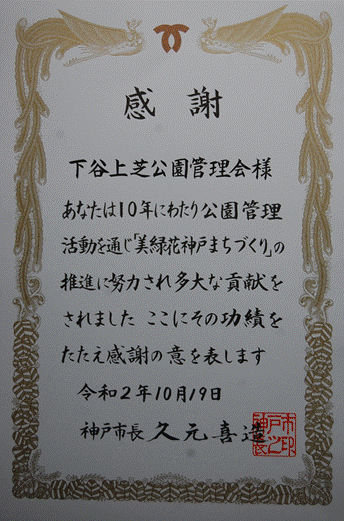 感謝
下谷上芝公園管理会様
あなたは10年にわたり公園管理
活動を通じ「美緑花神戸まちづくり」の
推進に努力され多大な貢献を
されました ここにその功績を
たたえ感謝の意を表します
令和2年10月19日
神戸市長 久元喜造
神戸市長之印